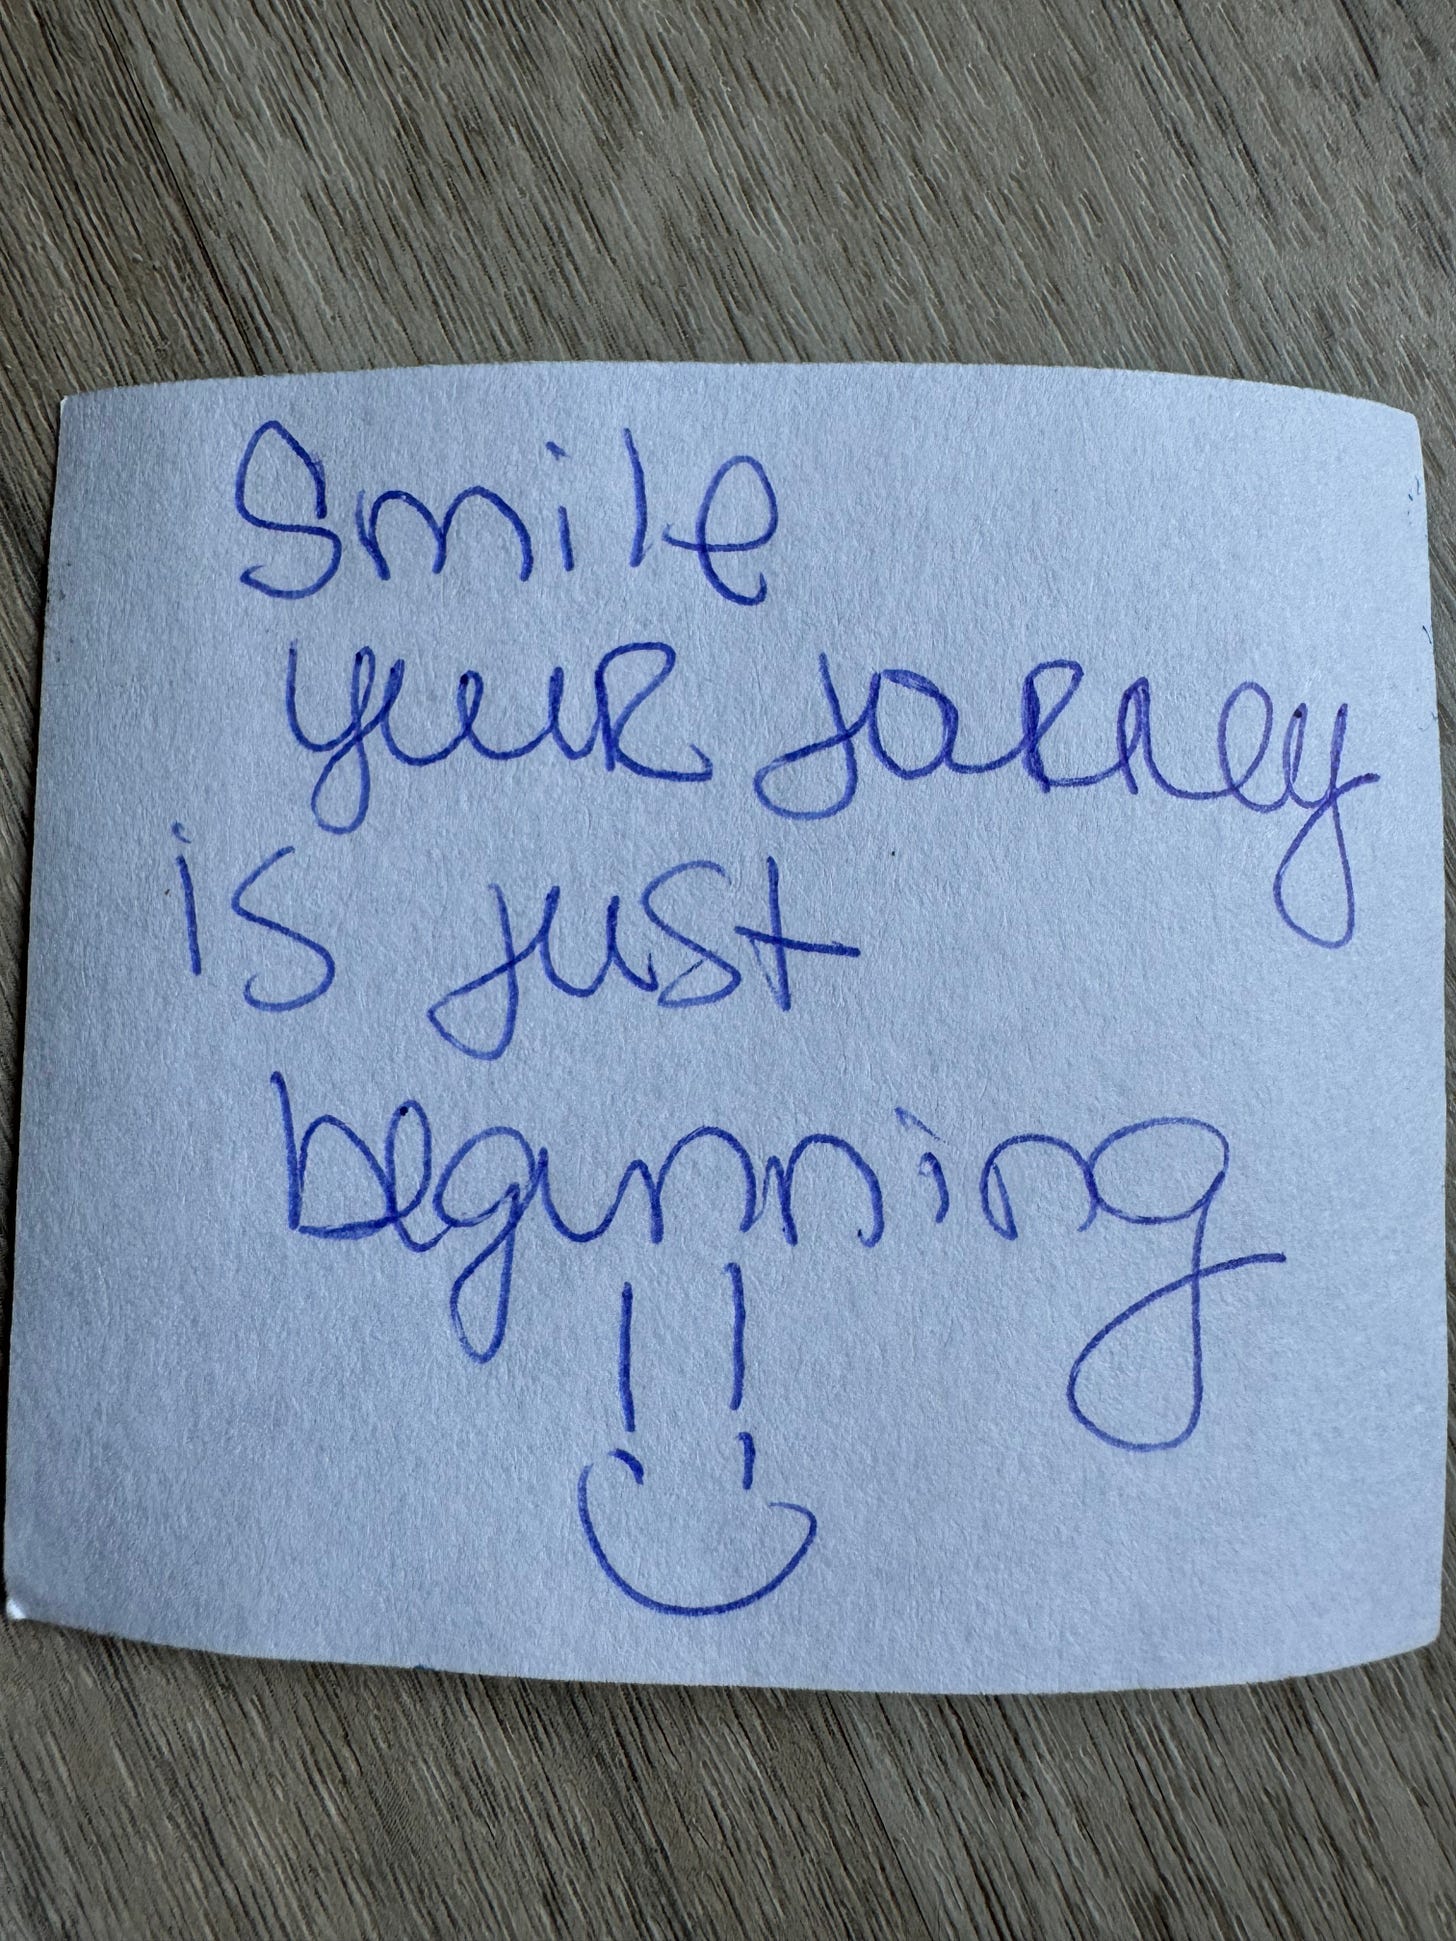 Smile
your jorney
is just
beginning
!!